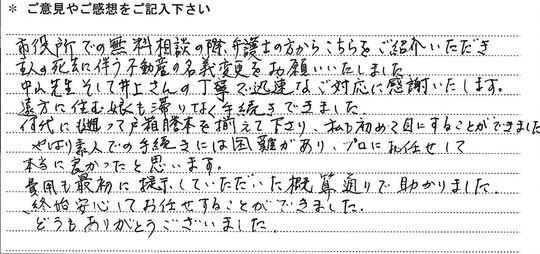 * ご意見やご感想をご記入下さい
市役所での無料相談の際、弁護士の方からこちらをご紹介いただき
主人の死去に伴う不動産の名義変更をお願いいたしました。
中山先生そして井上さんの丁寧で迅速なご対応に感謝いたします。
遠方に住む娘も滞りなく手続きできました。
何代にも遡って戸籍謄本を揃えて下さり、私も初めて目にすることができました
やはり素人での手続きには困難があり、プロにお任せして
本当に良かったと思います。
費用も最初に提示していただいた概算通りで助かりました。
終始安心してお任せすることができました。
どうもありがとうございました。